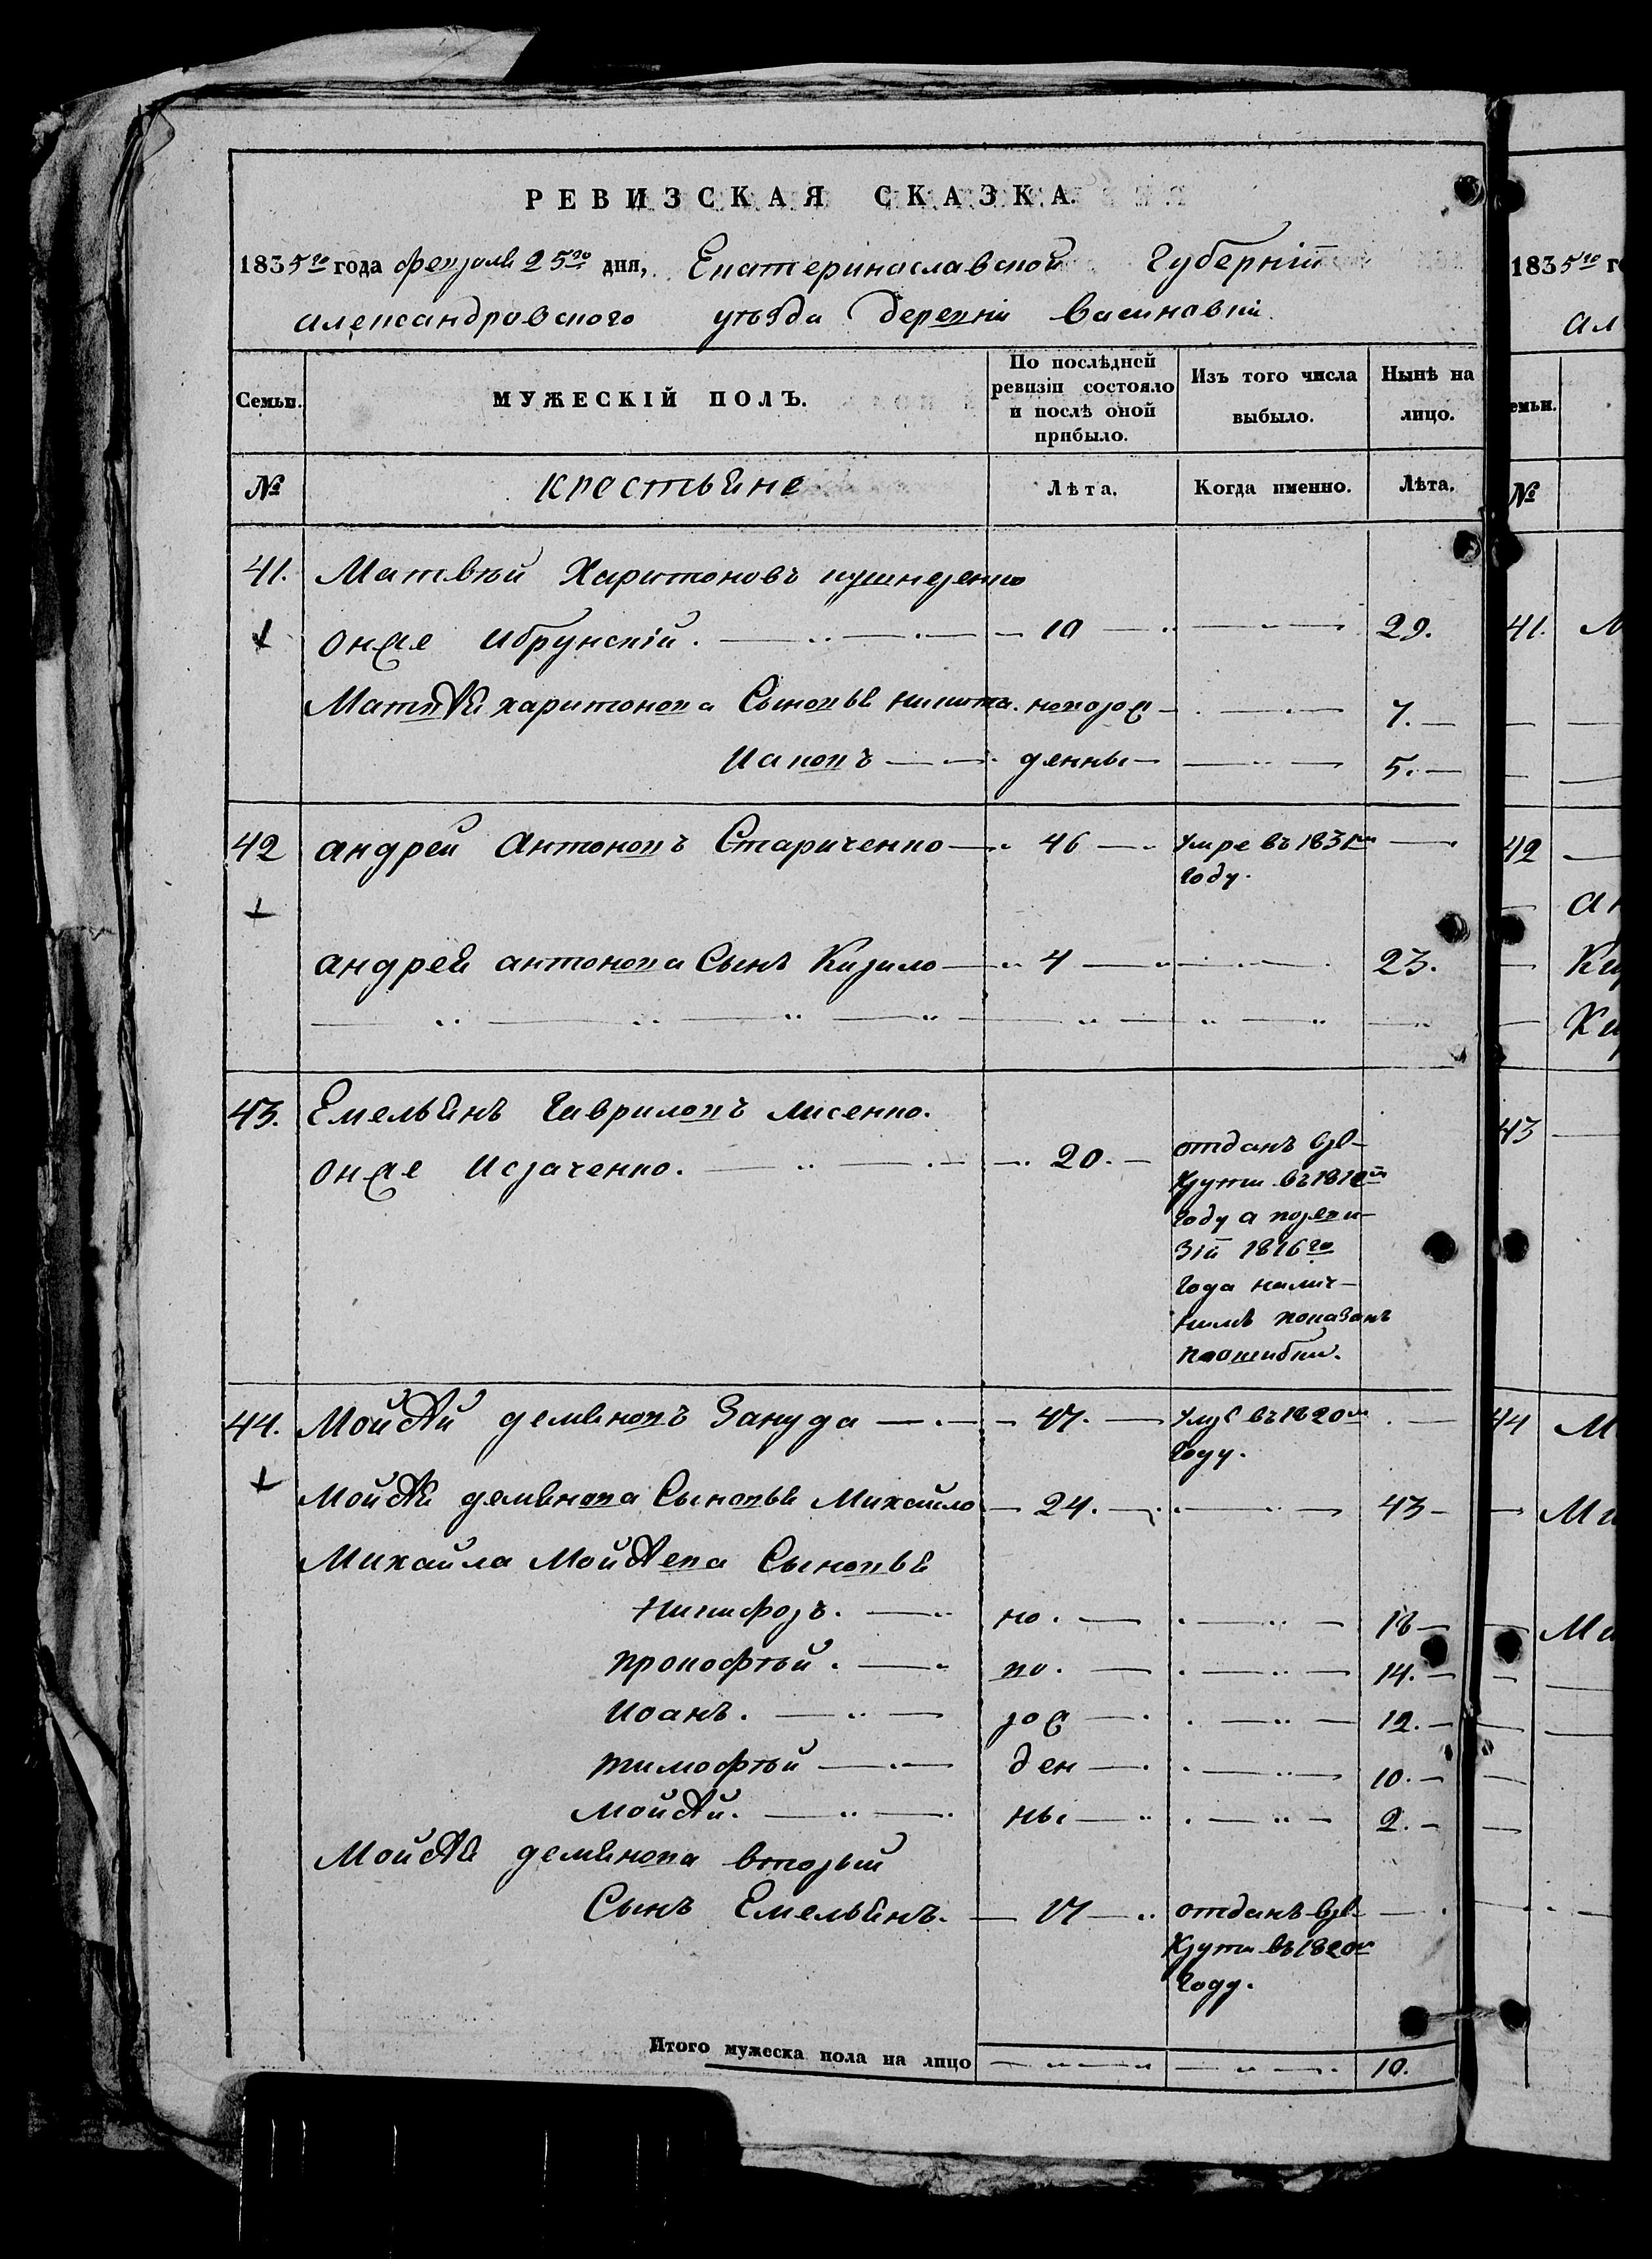 РЕВИЗСКАЯ СКАЗКА.
1835го года февраля 25го дня, Екатеринославской Губерніи
Александровского уѣзда деревни Васиновки
Семьи.
МУЖЕСКІЙ ПОЛЪ.
По послѣдней ревизіи состояло и послѣ оной прибыло.
Изъ того числа выбыло.
Нынѣ на лицо.
№
крестьяне
Лѣта.
Когда именно.
Лѣта.
41. Матвѣй Харитоновъ
онже 10 29.
Матвѣя харитонова Сыновья никита. новорож 7.
Иаковъ денны 5.
42 андрей Антоновъ Стариченко 46 умре въ 1831м
году.
андрея антонова Сынъ Кирило 4 23.
43. Емельянъ Гавриловъ лисенко.
онже Исраченко. 20. отданъ Ре-
круты въ 1812м
году а пореви-
зіи 1816го
года налич-
нымъ показанъ
поошибки.
44. Мойсѣй демяновъ Зануда 47. умре въ 1820м
году.
Мойсѣя демянова Сыновья Михайло 24. 43
Михайла Мойсѣева Сыновья
Никифоръ. но. 18
прокофѣй. во. 14.
Иоанъ. рож 12.
тимофѣй ден 10.
Мойсѣй. ны 2.
Мойсѣя демянова вторый
Сынъ Емельянъ. 17 отданъ Ре-
круты въ 1820м
году.
Итого мужеска пола на лицо 10.
1835го г
Ал
емьи.
№
41. М
42
Ан
Кир
Кир
43
44 М
Ми
Ми